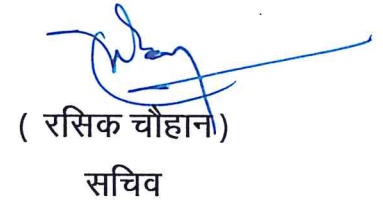 ( रसिक चौहान)
सचिव